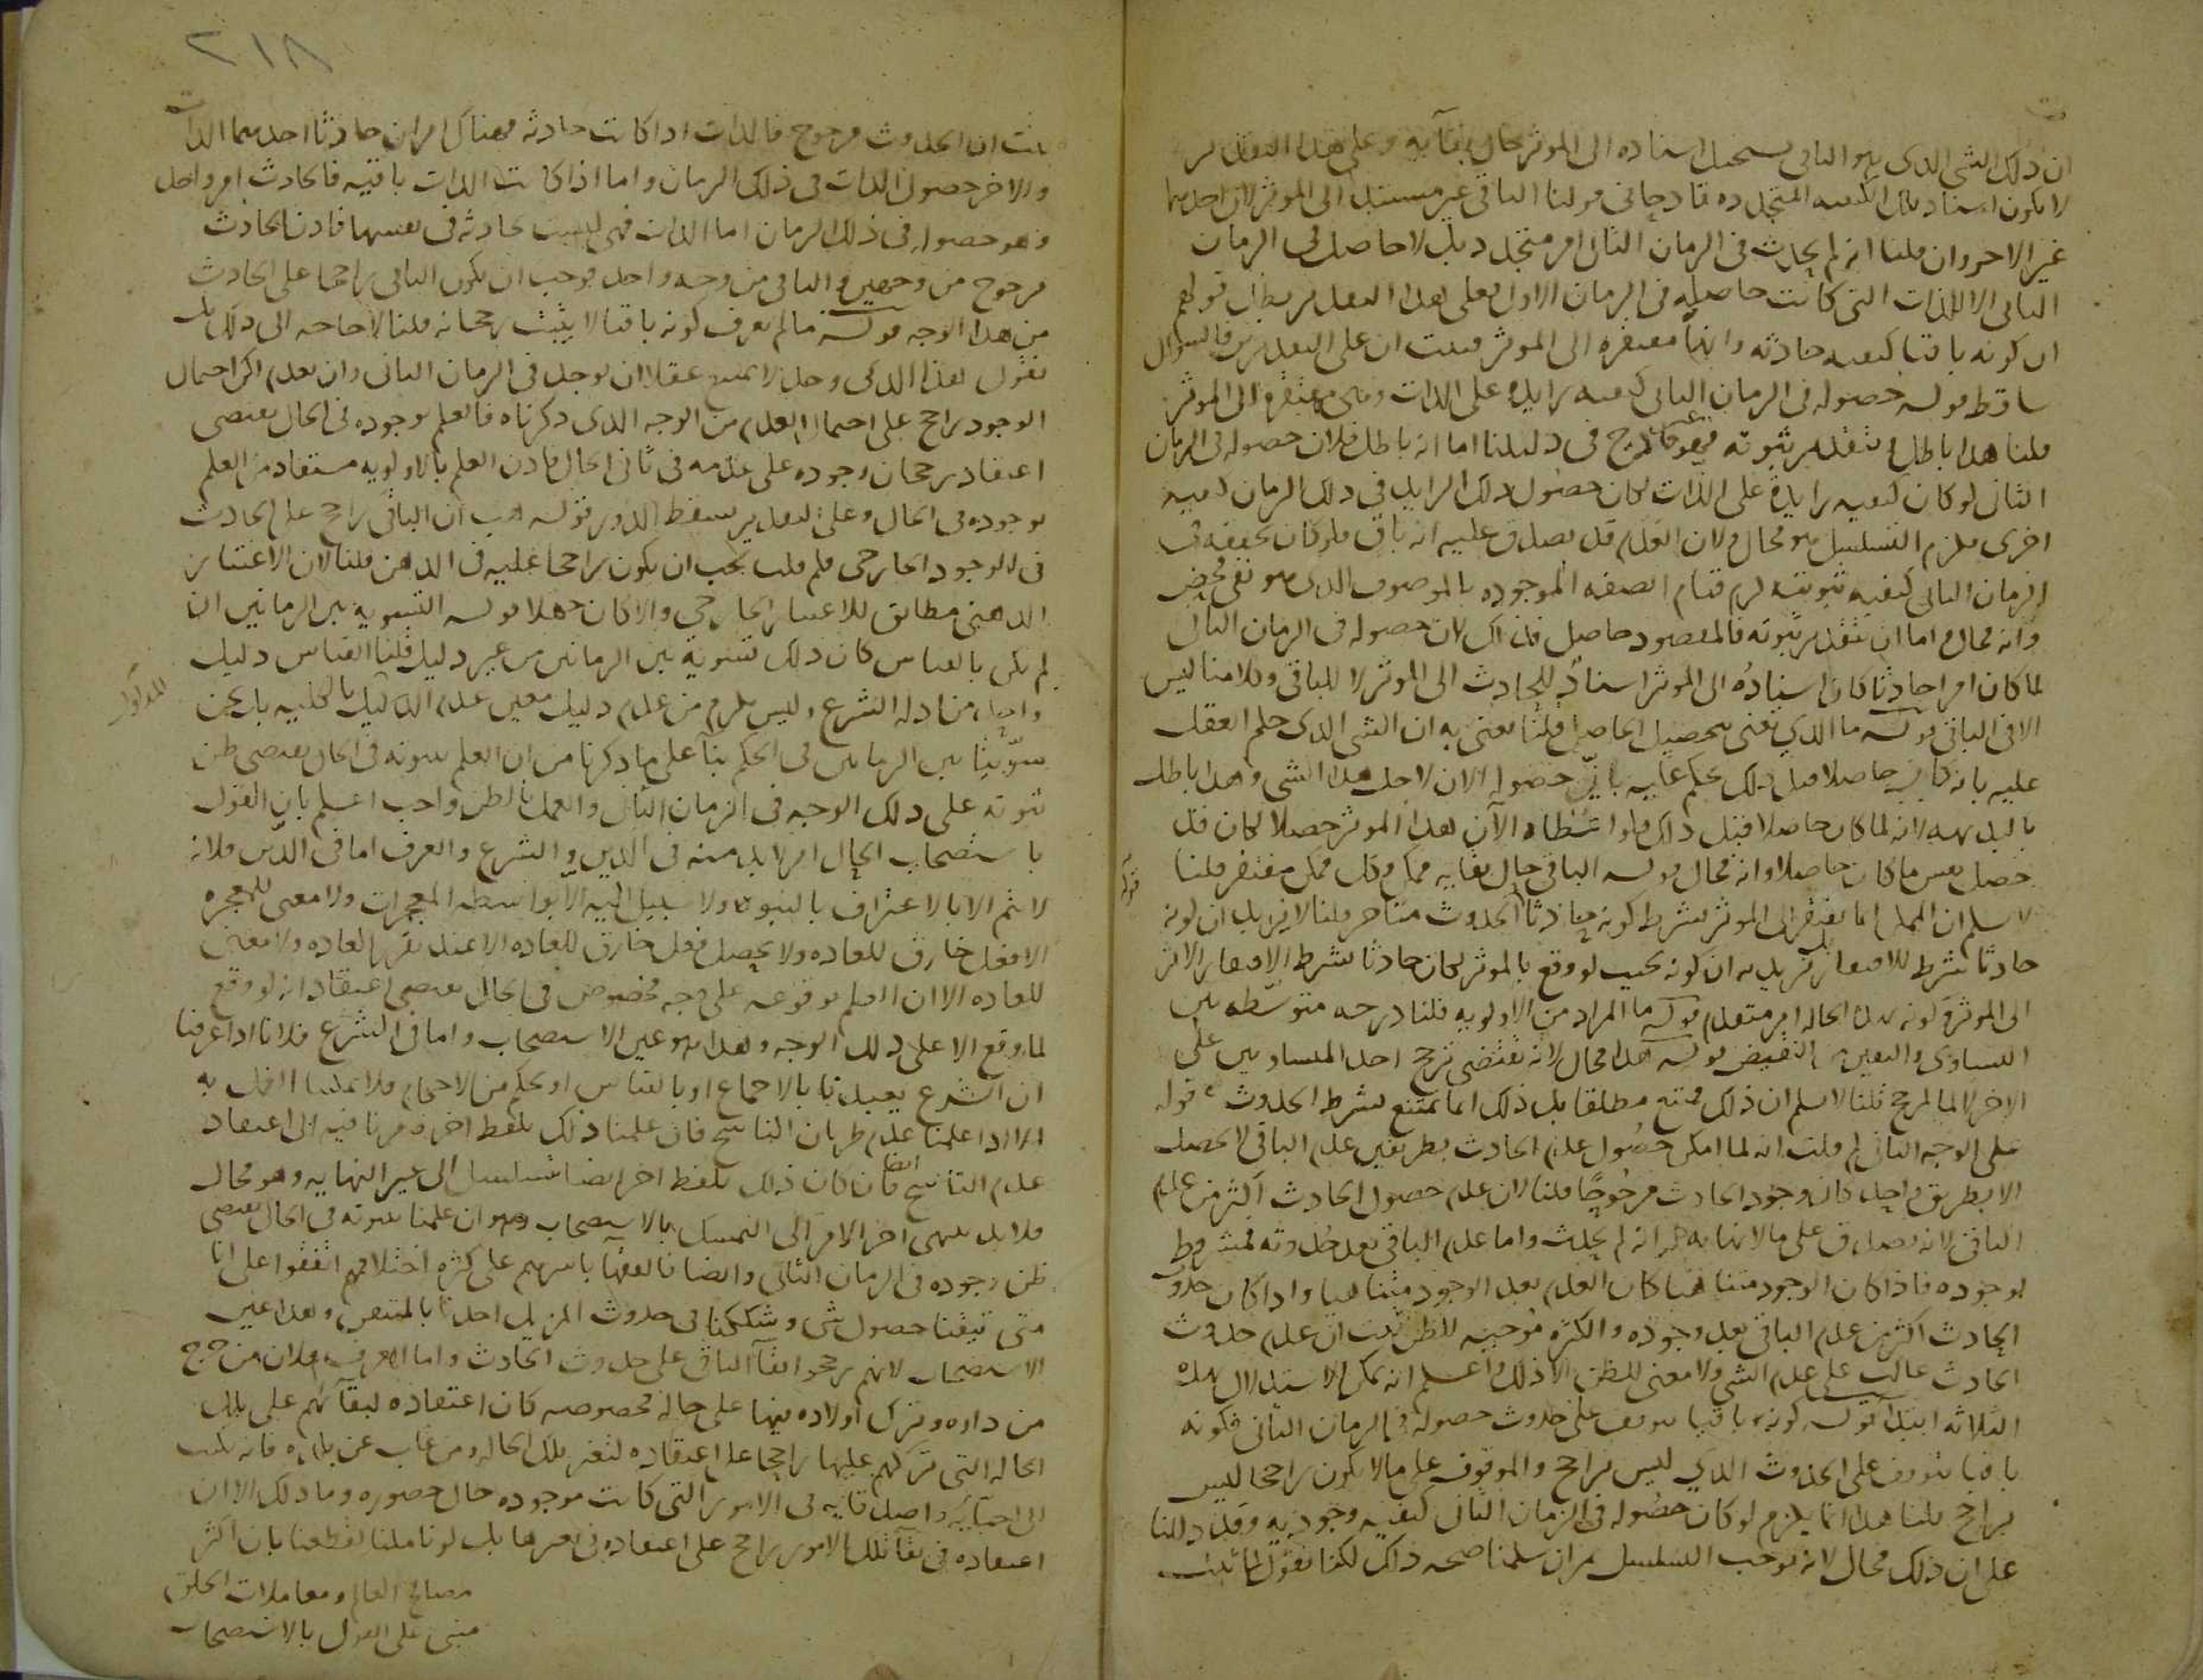 ان ذلك الشي الذي هو الباقي يستحيل اسناده الى الموثر حال بقايه وعلى هذا التقدير
لا يكون اسناد تلك الكيفيه المتجدده قادحا في قولنا الباقي غير مستند الى الموثر لان احدهما
غير الاخر وان قلنا انه لم يحدث في الزمان الثاني امر متجدد بل لا حاصل في الزمان
الثاني الا الذات التي كانت حاصله في الزمان الاول فعلى هذا التقدير بطل قولهم
ان كونه باقيا كيفيه حادثه وانها مفتقره الى الموثر فثبت ان على التقديرين فالسوال
ساقط قوله حصوله في الزمان الثاني كيفيه زايده على الذات وهي مفتقره الى الموثر
قلنا هذا باطل وبتقدير ثبوته فهو غير قادح في دليلنا اما انه باطل فلان حصوله في الزمان
الثاني لو كان كيفيه زايدة على الذات لكان حصول ذلك الزايد في ذلك الزمان كيفيه
اخرى فلزم التسلسل وهو محال ولان العدم قد يصدق عليه انه باق فلو كان تحققه في
الزمان الثاني كيفيه ثبوتيه لزم قيام الصفه الموجوده بالموصوف الذي هو نفي محض
وانه محال واما ان بتقدير ثبوته فالمقصود حاصل فذلك لان حصوله في الزمان الثاني
لما كان امرا حادثا كان اسناده الى الموثر اسنادا للحادث الى الموثر لا للباقي وكلامنا ليس
الا في الباقي قوله ما الذي يعنى بتحصيل الحاصل قلنا نعني به ان الشي الذي حكم العقل
عليه بانه كان حاصلا قبل ذلك يحكم عليه بان حصوله الان لاجل هذا الشي وهذا باطل
بالبديهه لانه لما كان حاصلا قبل ذلك فلو اعطاه الآن هذا الموثر حصولا لكان قد
حصل نفس ما كان حاصلا وانه محال قوله الباقي حال بقايه ممكن وكل ممكن مفتقر قلنا
لا نسلم ان الممكن انما يفتقر الى الموثر بشرط كونه حادثا قوله الحدوث متاخر قلنا لا نريد ان كونه
حادثا شرط للافتقار بل نريد به ان كونه بحيث لو وقع بالموثر لكان حادثا شرط لافتقار الاثر
الى الموثر وكونه بهذه الحاله امر متقدم قوله ما المراد من الاولويه قلنا درجه متوسطه بين
التساوي والتعين المانع من النقيض قوله هذا محال لانه يقتضي ترجح احد المتساويين على
الاخر لا لمرجح قلنا لا نسلم ان ذلك ممتنع مطلقا بل ذلك انما يمتنع بشرط الحدوث قوله
على الوجه الثاني لم قلت انه لما امكن حصول عدم الحادث بطريقين وعدم الباقي لا يحصل
الا بطريق واحد كان وجود الحادث مرجوحا قلنا لان عدم حصول الحادث اكثر من عدم
الباقي لانه يصدق على ما لا نهايه له انه لم يحدث واما عدم الباقي بعد حدوثه فمشروط
بوجوده فاذا كان الوجود متناهيا كان العدم بعد الوجود متناهيا واذا كان حدوث
الحادث اكثر من عدم الباقي بعد وجوده والكثره موجبه للظن ثبت ان عدم حدوث
الحادث غالب على عدم الشي ولا معنى للظن الا ذلك واعلم انه يمكن الاستدلال بهذه
الثلاثه ابتدا قوله كونه باقيا يتوقف على حدوث حصوله في الزمان الثاني فكونه
باقيا يتوقف على الحدوث الذي ليس براجح والموقوف على ما لا يكون راجحا ليس
براجح قلنا هذا انما يلزم لو كان حصوله في الزمان الثاني كيفيه وجوديه وقد دللنا
على ان ذلك محال لانه يوجب التسلسل ثم ان سلمنا صحه ذلك لكنا نقول لما ثبت
٢١٨
ثبت ان الحدوث مرجوح فالذات اذا كانت حادثه فهناك امران حادثا احدهما الذات
والاخر حصول الذات في ذلك الزمان واما اذا كانت الذات باقيه فالحادث امر واحد
وهو حصوله في ذلك الزمان اما الذات فهي ليست حادثه في نفسها فاذن الحادث
مرجوح من وجهين والباقي من وجه واحد فوجب ان يكون الباقي راجحا على الحادث
من هذا الوجه قوله ما لم يعرف كونه باقيا لا يثبت رجحانه قلنا لا حاجه الى ذلك بل
نقول هذا الذي وجد لا يمتنع عقلا ان يوجد في الزمان الثاني وان يعدم لكن احتمال
الوجود راجح على احتمال العدم من الوجه الذي ذكرناه فالعلم بوجوده في الحال يقتضى
اعتقاد رجحان وجوده على عدمه في ثاني الحال فاذن العلم بالاولويه مستفاد من العلم
بوجوده في الحال وعلى التقدير يسقط الدور قوله هب ان الباقي راجح على الحادث
في الوجود الخارجى فلم قلت يجب ان يكون راجحا عليه في الذهن قلنا لان الاعتبار
الذهني مطابق للاعتبار الخارجي والا كان جهلا قوله التسويه بين الزمانين ان
لم يكن بالقياس كان ذلك تسويه بين الزمانين من غير دليل قلنا القياس دليل
واحد من ادله الشرع وليس يلزم من عدم دليل معين عدم الدليل بالكليه بل نحن
للمدلول
سوينا بين الزمانين في الحكم بنآ على ما ذكرنا من ان العلم بثبوته في الحال يقتضى ظن
ثبوته على ذلك الوجه في الزمان الثاني والعمل بالظن واجب اعلم بان القول
باستصحاب الحال امر لا بد منه في الدين والشرع والعرف اما في الدين فلانه
لا يتم الا بالاعتراف بالنبوه ولا سبيل اليه الا بواسطه المعجزات ولا معنى للمعجزه
الا فعل خارق للعاده ولا يحصل فعل خارق للعاده الا عند تقرر العاده ولا معنى
للعاده الا ان العلم بوقوعه على وجه مخصوص في الحال يقتضى اعتقاد انه لو وقع
لما وقع الا على ذلك الوجه وهذا هو عين الاستصحاب واما في الشرع فلانا اذا عرفنا
ان الشرع تعبدنا بالاجماع او بالقياس او بحكم من الاحكام فلا يمكننا العمل به
الا اذا علمنا عدم طريان الناسخ فان علمنا ذلك بلفظ اخر افتقرنا فيه الى اعتقاد
عدم الناسخ ايضا فان كان ذلك بلفظ اخر ايضا تسلسل الى غير النهايه وهو محال
فلا بد ينتهى اخر الامر الى التمسك بالاستصحاب وهو ان علمنا بثبوته في الحال يقتضي
ظن وجوده في الزمان الثاني وايضا فالفقها باسرهم على كثره اختلافهم اتفقوا على انا
متى تيقنا حصول شي وشككنا في حدوث المزيل اخذنا بالمتيقن وهذا عين
الاستصحاب لانهم رجحوا بقآ الباقي على حدوث الحادث واما العرف فلان من خرج
من داره وترك اولاده فيها على حاله مخصوصه كان اعتقاده لبقآئهم على تلك
الحاله التي تركهم عليها راجحا على اعتقاده لتغير تلك الحاله ومن غاب عن بلده فانه يكتب
الى احبائه واصدقايه في الامور التي كانت موجوده حال حضوره وما ذلك الا لان
اعتقاده في بقآ تلك الامور راجح على اعتقاده في تغيرها بل لو تاملنا لقطعنا بان اكثر
مصالح العالم ومعاملات الخلق
مبنى على القول بالاستصحاب